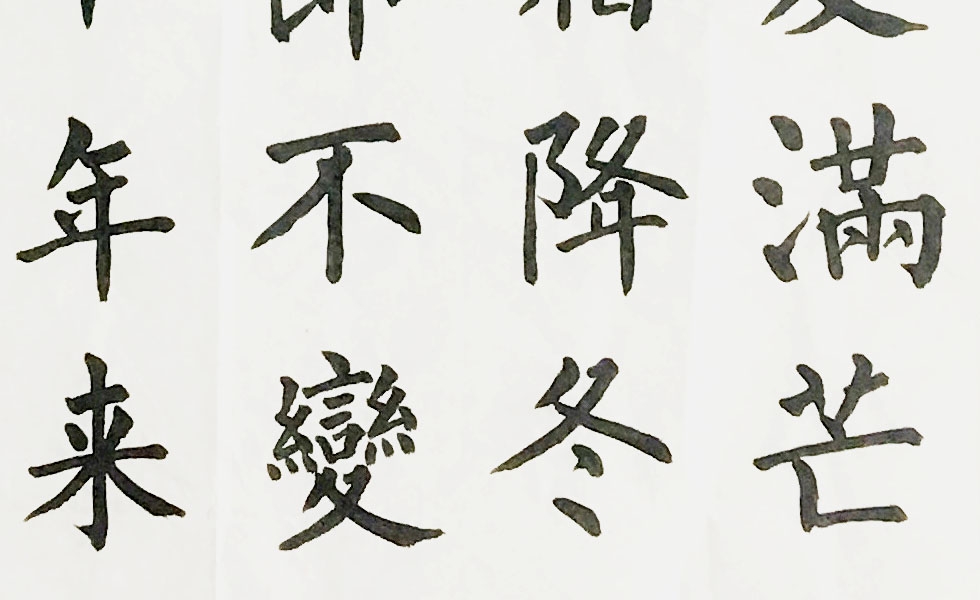 滿芒
降冬
不變
年来